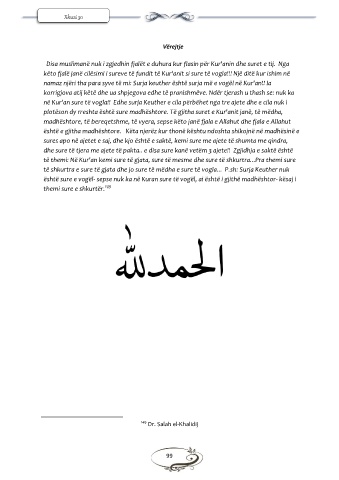 Xhuzi 30
Vërejtje
Disa muslimanë nuk i zgjedhin fjalët e duhura kur flasin për Kur'anin dhe suret e tij. Nga
këto fjalë janë cilësimi i sureve të fundit të Kur'anit si sure të vogla!! Një ditë kur ishim në
namaz njëri tha para syve të mi: Surja keuther është surja më e vogël në Kur'an!! Ia
korrigjova atij këtë dhe ua shpjegova edhe të pranishmëve. Ndër tjerash u thash se: nuk ka
në Kur'an sure të vogla!! Edhe surja Keuther e cila përbëhet nga tre ajete dhe e cila nuk i
plotëson dy rreshta është sure madhështore. Të gjitha suret e Kur'anit janë, të mëdha,
madhështore, të bereqetshme, të vyera, sepse këto janë fjala e Allahut dhe fjala e Allahut
është e gjitha madhështore. Këta njerëz kur thonë kështu ndoshta shikojnë në madhësinë e
sures apo në ajetet e saj, dhe kjo është e saktë, kemi sure me ajete të shumta me qindra,
dhe sure të tjera me ajete të pakta.. e disa sure kanë vetëm 3 ajete!! Zgjidhja e saktë është
të themi: Në Kur'an kemi sure të gjata, sure të mesme dhe sure të shkurtra...Pra themi sure
të shkurtra e sure të gjata dhe jo sure të mëdha e sure të vogla... P.sh: Surja Keuther nuk
është sure e vogël- sepse nuk ka në Kuran sure të vogël, ai është i gjithë madhështor- kësaj i
themi sure e shkurtër.
الحمد لله
Dr. Salah el-Khalidij
99